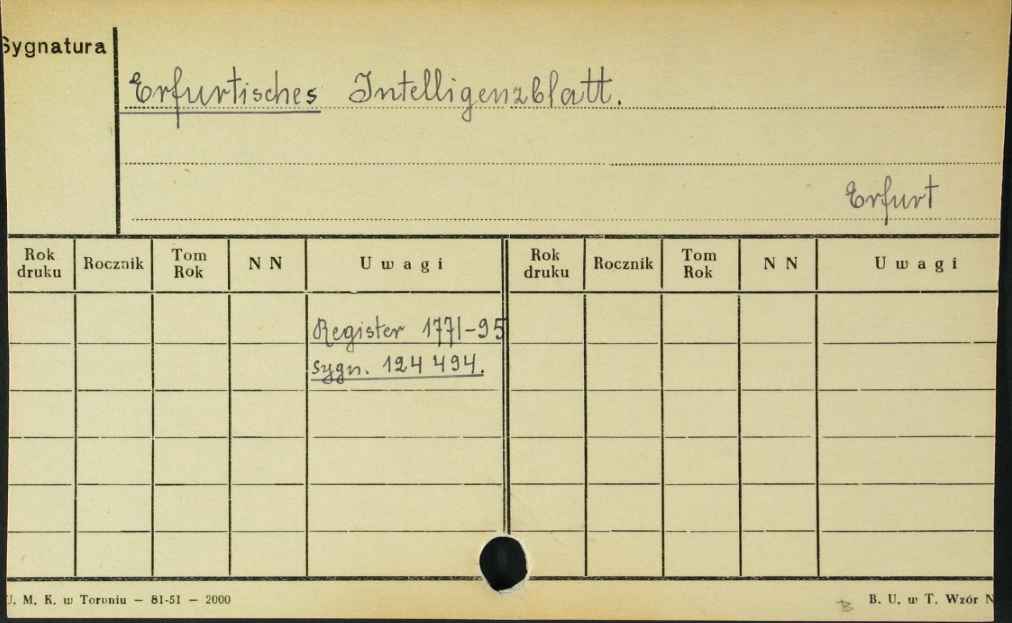 Sygnatura
Erfurtisches Intelligenzblatt.
Erfurt
Rok druku Rocznik Tom Rok N N Uwagi Rok druku Rocznik Tom Rok N N Uwagi
Register 1771-95
sygn. 124 494.
U. M. K. w Toruniu — 81-51 — 2000
B. U. w T. Wzór N